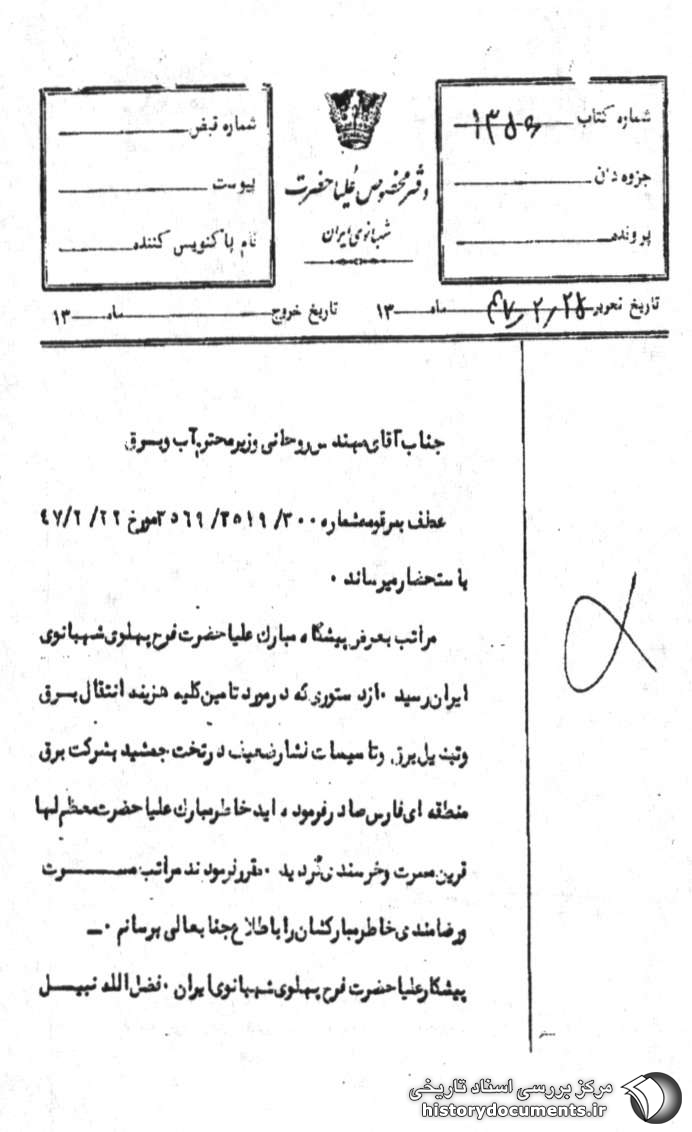 شماره کتاب ۱۳۵۶
جزوه دان
پرونده
دفتر مخصوص علیاحضرت
شهبانوی ایران
شماره قبض
پیوست
نام پاکنویس کننده
تاریخ تحریر ۴۷/۲/۲۵ ماه ۱۳
تاریخ خروج ماه ۱۳
جناب آقای مهندس روحانی وزیر محترم آب و برق
عطف بمرقومه شماره ۳۰۰/ ۳۵۱۹/ ۳۵۶۹ مورخ ۲۲/ ۲/ ۴۷
باستحضار میرساند ۰
مراتب بعرض پیشگاه مبارك علیاحضرت فرح پهلوی شهبانوی
ایران رسید ۰ از دستوری که در مورد تامین کلیه هزینه انتقال برق
وتبدیل برق وتاسیسات فشار ضعیف در تخت جمشید بشرکت برق
منطقه ای فارس صادر فرموده اید خاطر مبارك علیا حضرت معظم لها
قرین مسرت وخرسندی گردید ۰ مقرر فرمودند مراتب مسرت
ورضامندی خاطر مبارکشان را باطلاع جنابعالی برسانم ۰ـ
پیشکار علیاحضرت فرح پهلوی شهبانوی ایران ۰ فضل الله نبیل
مرکز بررسی اسناد تاریخی
historydocuments.ir